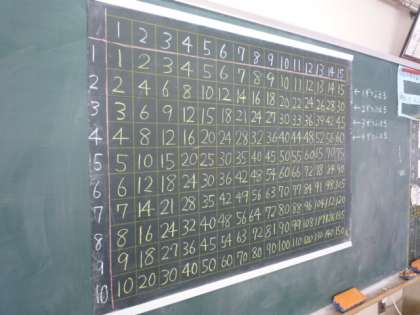 1 2 3 4 5 6 7 8 9 10 11 12 13 14 15
1 1 2 3 4 5 6 7 8 9 10 11 12 13 14 15
2 2 4 6 8 10 12 14 16 18 20 22 24 26 28 30
3 3 6 9 12 15 18 21 24 27 30 33 36 39 42 45
4 4 8 12 16 20 24 28 32 36 40 44 48 52 56 60
5 5 10 15 20 25 30 35 40 45 50 55 60 65 70 75
6 6 12 18 24 30 36 42 48 54 60 66 72 78 84 90
7 7 14 21 28 35 42 49 56 63 70 77 84 91 98 105
8 8 16 24 32 40 48 56 64 72 80 88 96 104 112 120
9 9 18 27 36 45 54 63 72 81 90 99 108 117 126 135
10 10 20 30 40 50 60 70 80 90 100 110 120 130 140 150